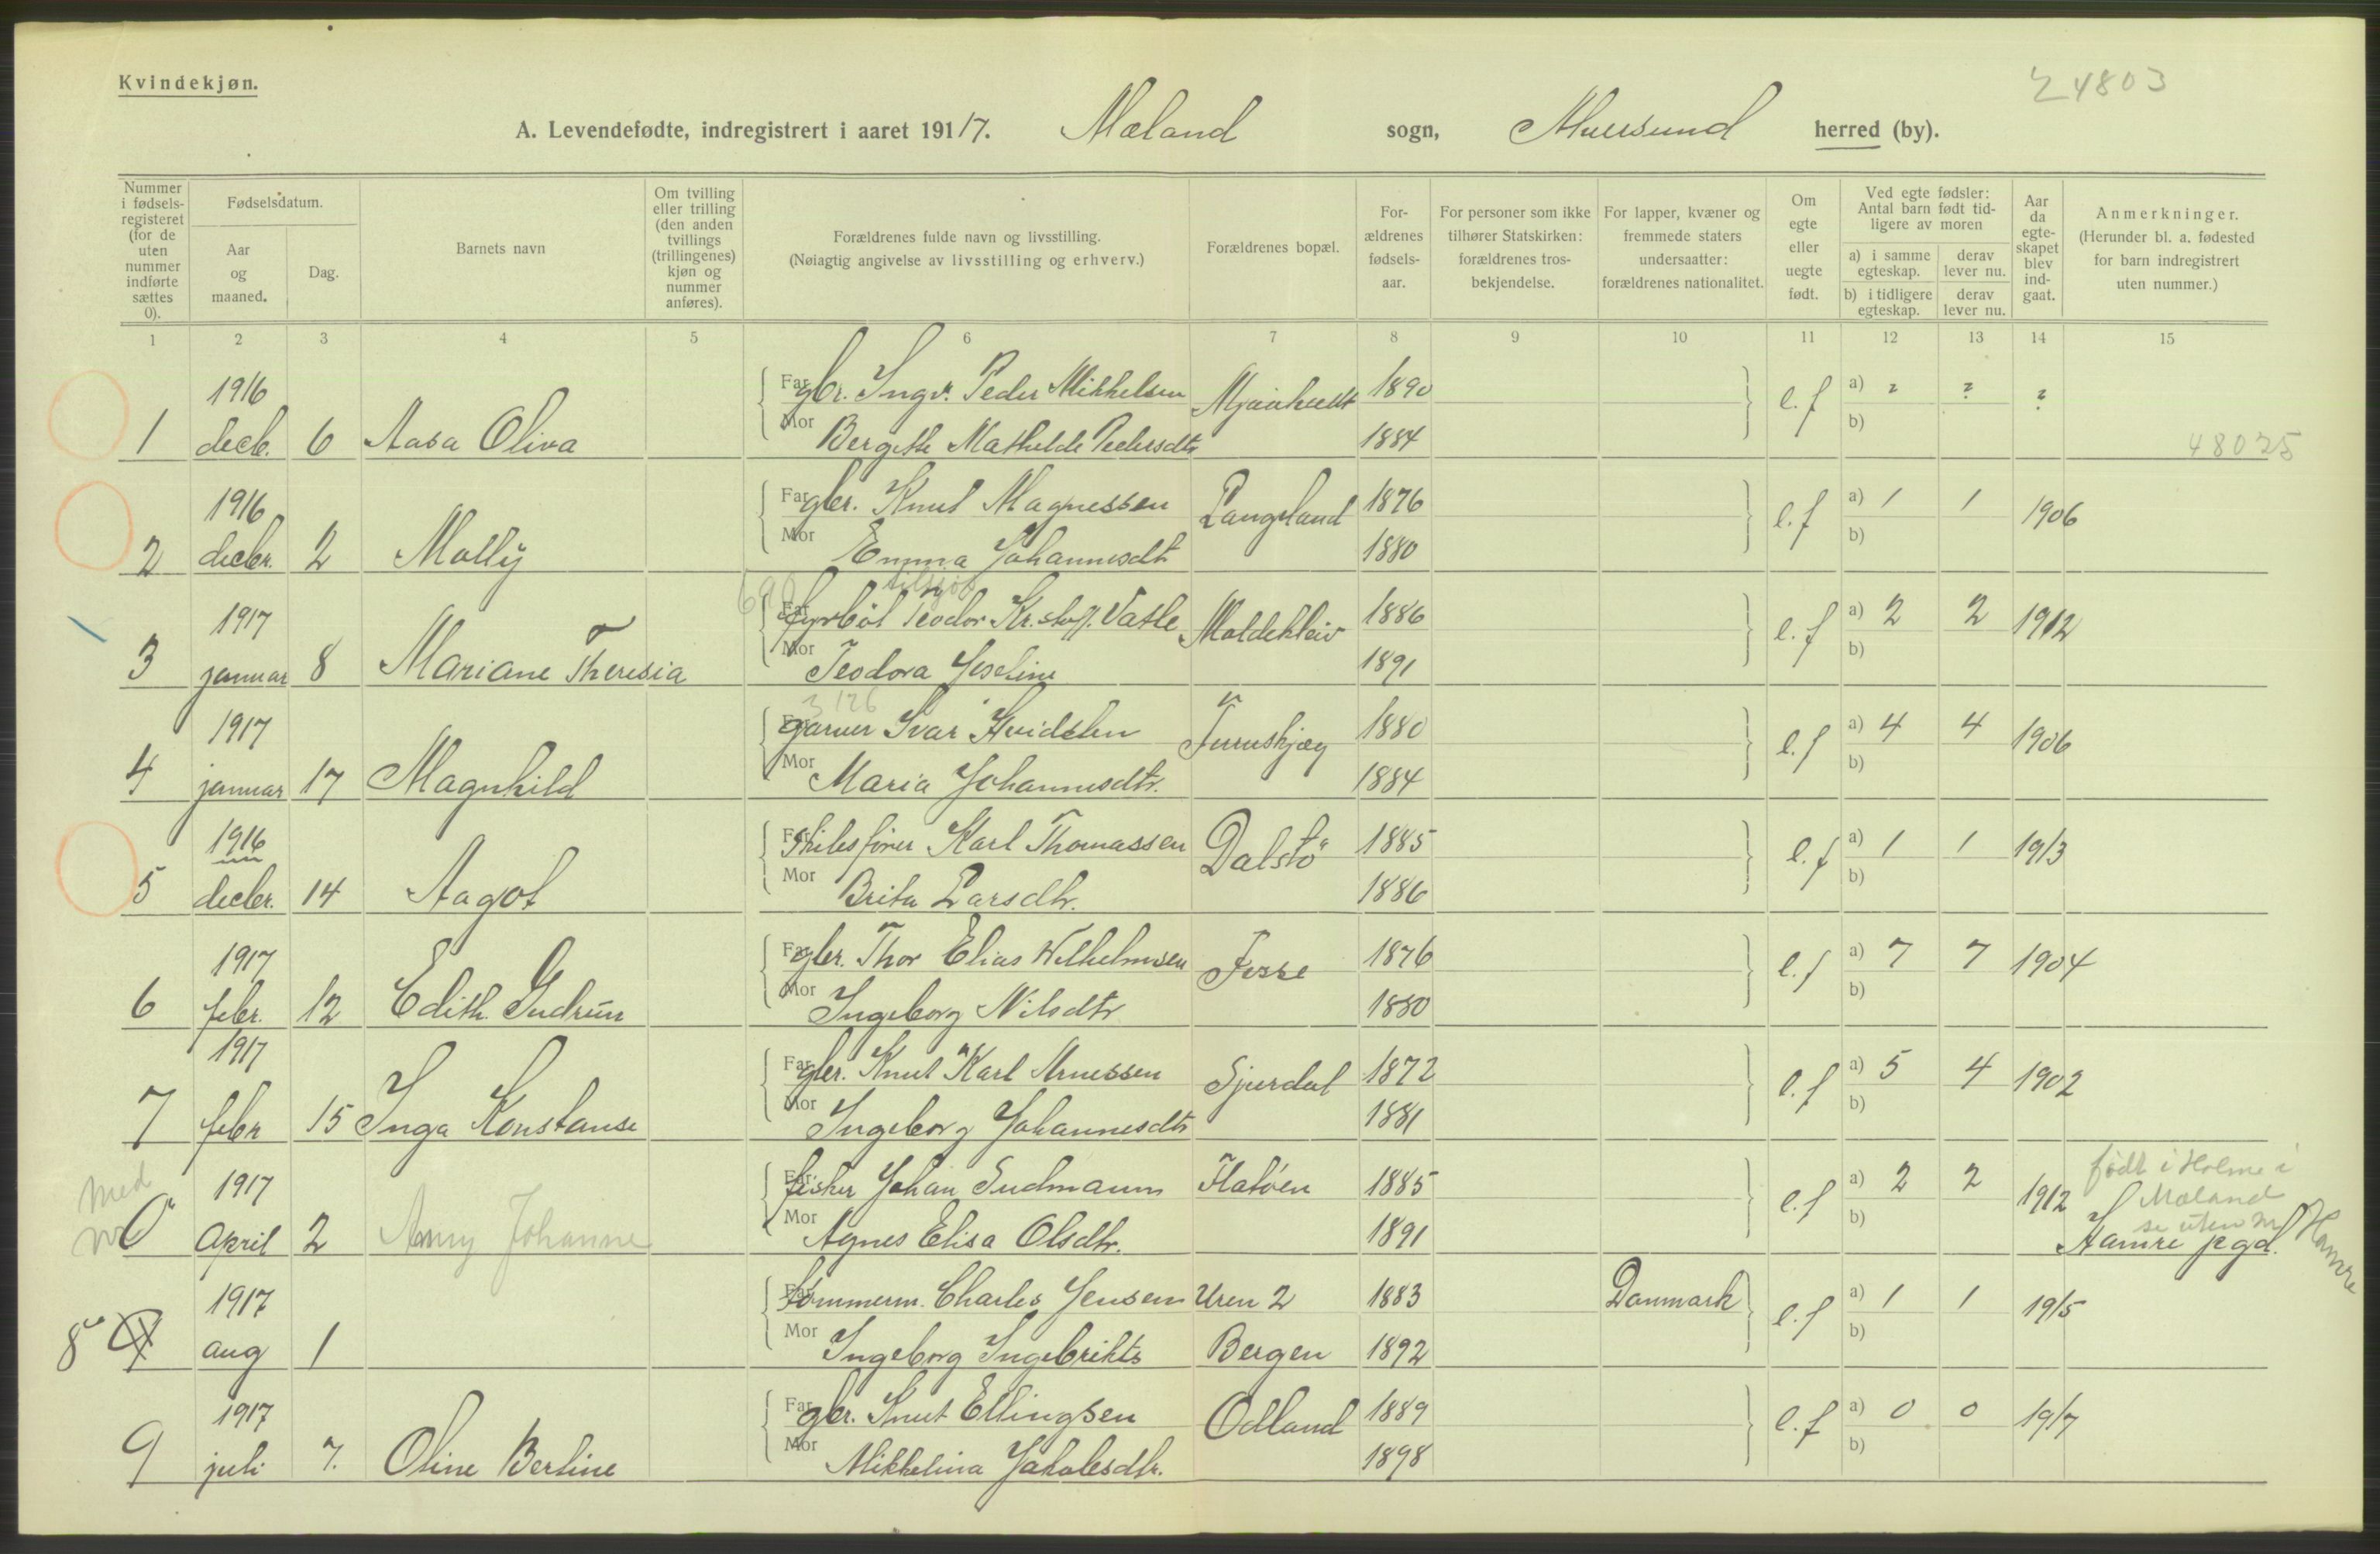 Kvindekjøn.
24803
A. Levendefødte, indregistrert i aaret 1917. Mæland sogn, Alversund herred (by).
Nummer i fødsels-registeret (for de uten nummer indførte sættes 0).
Fødselsdatum.
Aar og maaned.
Dag.
Barnets navn
Om tvilling eller trilling (den anden tvillings (trillingenes) kjøn og nummer anføres).
Forældrenes fulde navn og livsstilling.
(Nøiagtig angivelse av livsstilling og erhverv.)
Forældrenes bopæl.
For-ældrenes fødsels-aar.
For personer som ikke tilhører Statskirken: forældrenes tros-bekjendelse.
For lapper, kvæner og fremmede staters undersaatter: forældrenes nationalitet.
Om egte eller uegte født.
Ved egte fødsler: Antal barn født tid-ligere av moren
a) i samme egteskap.
derav lever nu.
b) i tidligere egteskap.
derav lever nu.
Aar da egte-skapet blev ind-gaat.
Anmerkninger.
(Herunder bl. a. fødested for barn indregistrert uten nummer.)
1 2 3 4 5 6 7 8 9 10 11 12 13 14 15
1916 Far gbr. Ingv. Peder Mikkelsen 1890 e.f a) ? ? ?
1 decb. 6 Aasa Oliva Mor Bergitte Mathilde Pedersdtr 1884 b) 48025
1916 Far gbr. Knut Magnessen Langeland 1876 e.f a) 1 1 1906
2 decbr. 2 Molly Mor Emma Johannesdtr 1880 b)
1917 Far fyrböt Teodor Kr. stoff. Vatle Moldekleiv 1886 e.f a) 2 2 1912
3 januar 8 Mariane Theresia Mor Teodora Joseline 1891 b)
3126
1917 Far garver Ivar Hvidsten 1880 e.f a) 4 4 1906
4 januar 17 Magnhild Mor Maria Johannesdtr. 1884 b)
1916 Far Skibsfører Karl Thomassen Dalstö 1885 e.f a) 1 1 1913
5 decbr. 14 Aagot Mor Brita Larsdtr. 1886 b)
1917 Far gbr. Thor Elias Wilhelmsen Fosse 1876 e.f a) 7 7 1904
6 febr. 12 Edith Gudrun Mor Ingeborg Nilsdtr 1880 b)
1917 Far gbr. Knut Karl Arnessen Sjurdal 1872 e.f a) 5 4 1902
7 febr 15 Inga Konstanse Mor Ingeborg Johannesdtr 1881 b)
med 1917 Far fisker Johan Gudmann Flatöen 1885 e.f a) 2 2 1912 født i Holme i Mæland
nr 0 April 2 Anny Johanne Mor Agnes Elisa Olsdtr. 1891 b) se uten nr Hamre
Hamre pgd.
1917 Far tömmerm. Charles Jensen Uren 2 1883 Danmark e.f a) 1 1 1915
8 aug 1 Mor Ingeborg Ingebrikts Bergen 1892 b)
1917 Far gbr. Knut Ellingsen Odland 1889 e.f a) 0 0 1917
9 juli 7. Oline Bertine Mor Mikkelina Jakobsdtr. 1898 b)